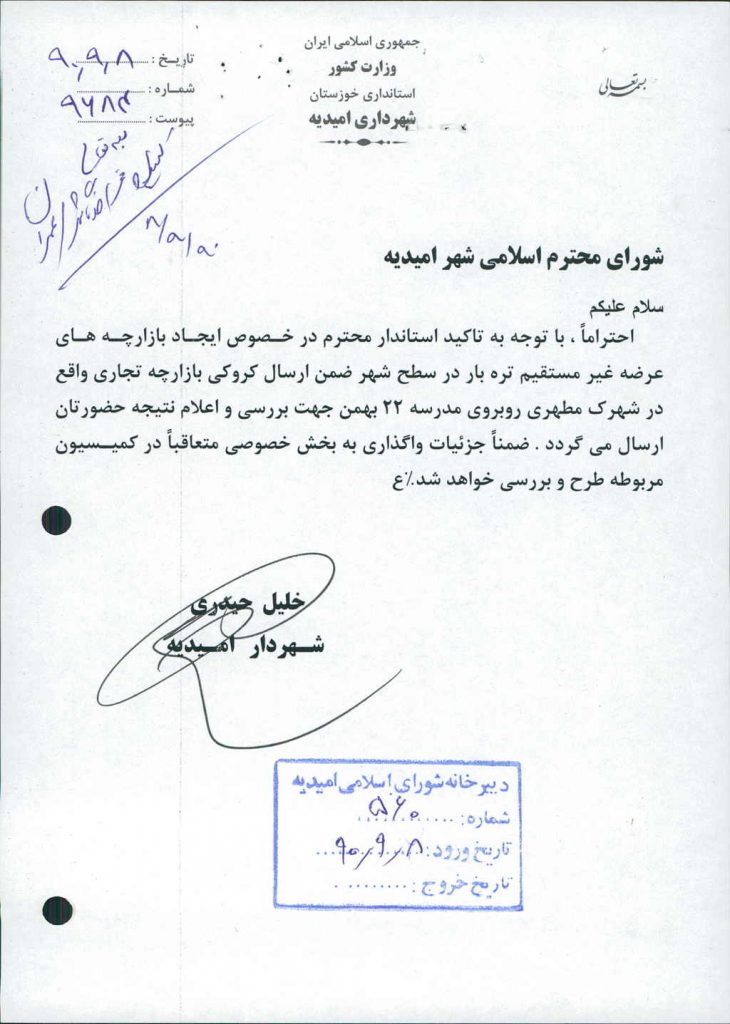 بسمه تعالی
جمهوری اسلامی ایران
وزارت کشور
استانداری خوزستان
شهرداری امیدیه
تاریـخ : ۹۰٫۹٫۸
شماره : ۹۶۸۴
پیوست :
۹۰/۹/۸
شورای محترم اسلامی شهر امیدیه
سلام علیکم
احتراماً ، با توجه به تاکید استاندار محترم در خـصوص ایجـاد بازارچـه هـای
عرضه غیر مستقیم تره بار در سطح شهر ضمن ارسال کروکی بازارچه تجاری واقع
در شهرک مطهری روبروی مدرسه ۲۲ بهمن جهت بررسی و اعلام نتیجه حضورتان
ارسال می گردد . ضمناً جزئیات واگذاری به بخش خصوصی متعاقباً در کمیـسیون
مربوطه طرح و بررسی خواهد شد٪ع
خلیل حیدری
شـهردار امـیدیه
دبیرخانه شورای اسلامی امیدیه
شماره: ۵۶۰
تاریخ ورود: ۹۰٫۹٫۸
تاریخ خروج :